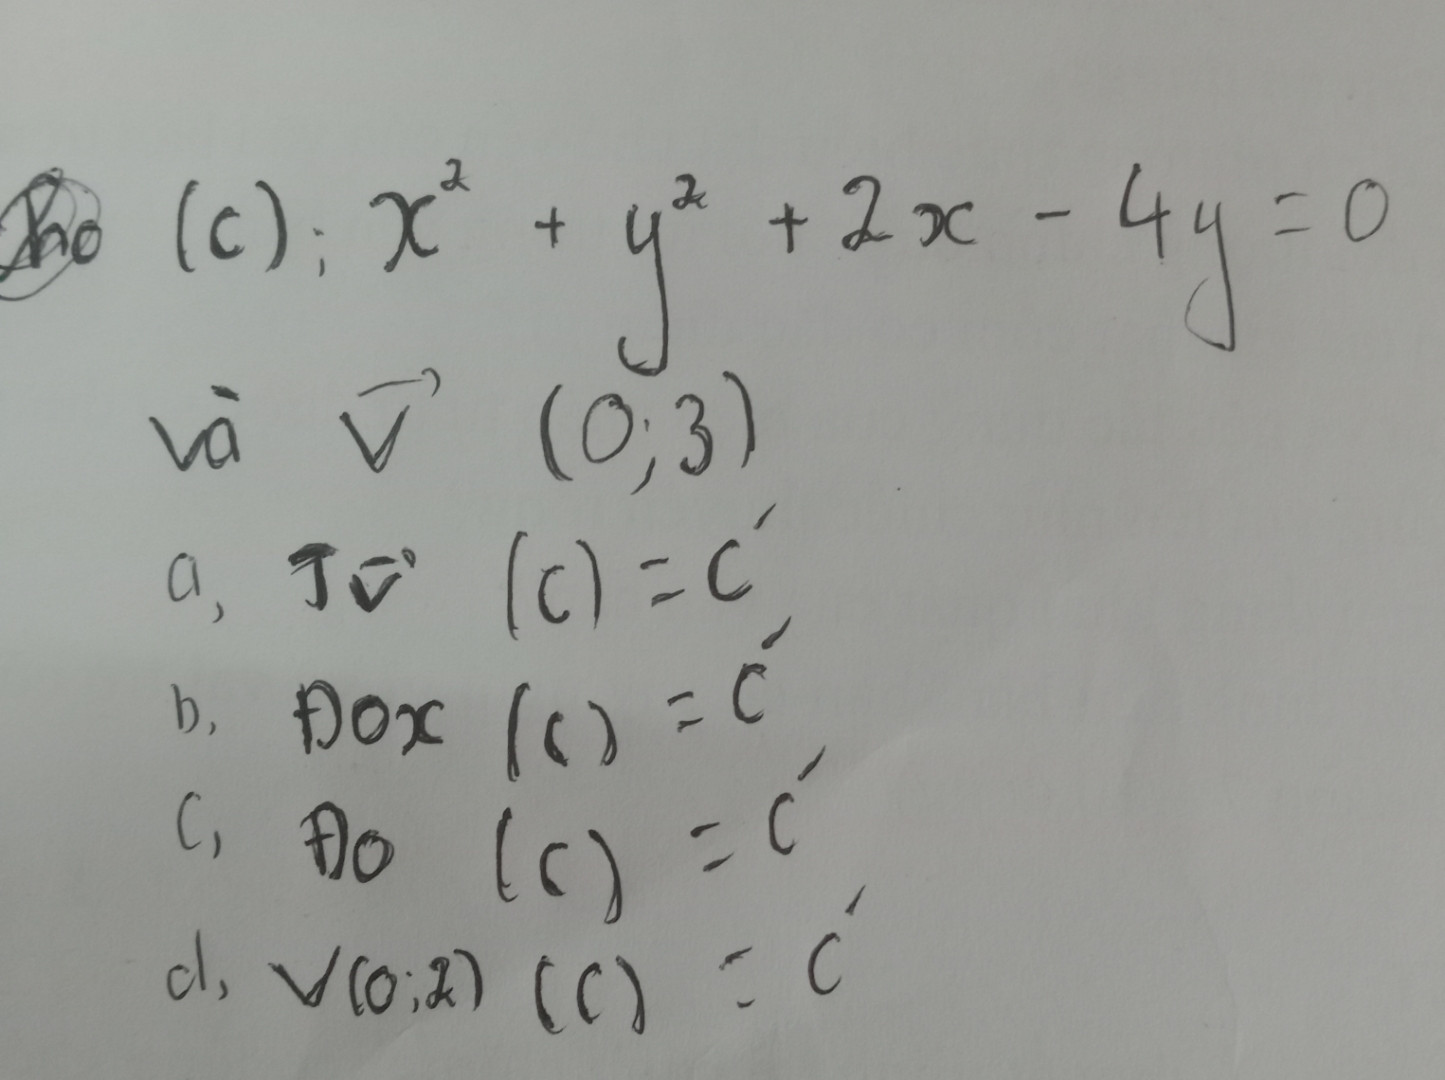 Cho (C): x² + y² + 2x - 4y = 0
và v⃗ (0;3)
a, Tv⃗ (C) = C'
b, Đox (C) = C'
c, Đo (C) = C'
d, V(0;2) (C) = C'